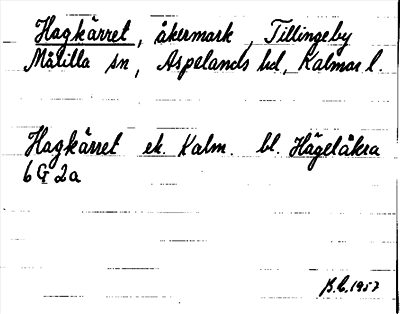 Hagkärret, åkermark, Tillingeby
Målilla sn, Aspelands hd, Kalmar l.
Hagkärret ek. Kalm. bl. Hägelåkra
6 G 2a
B.L. 1957